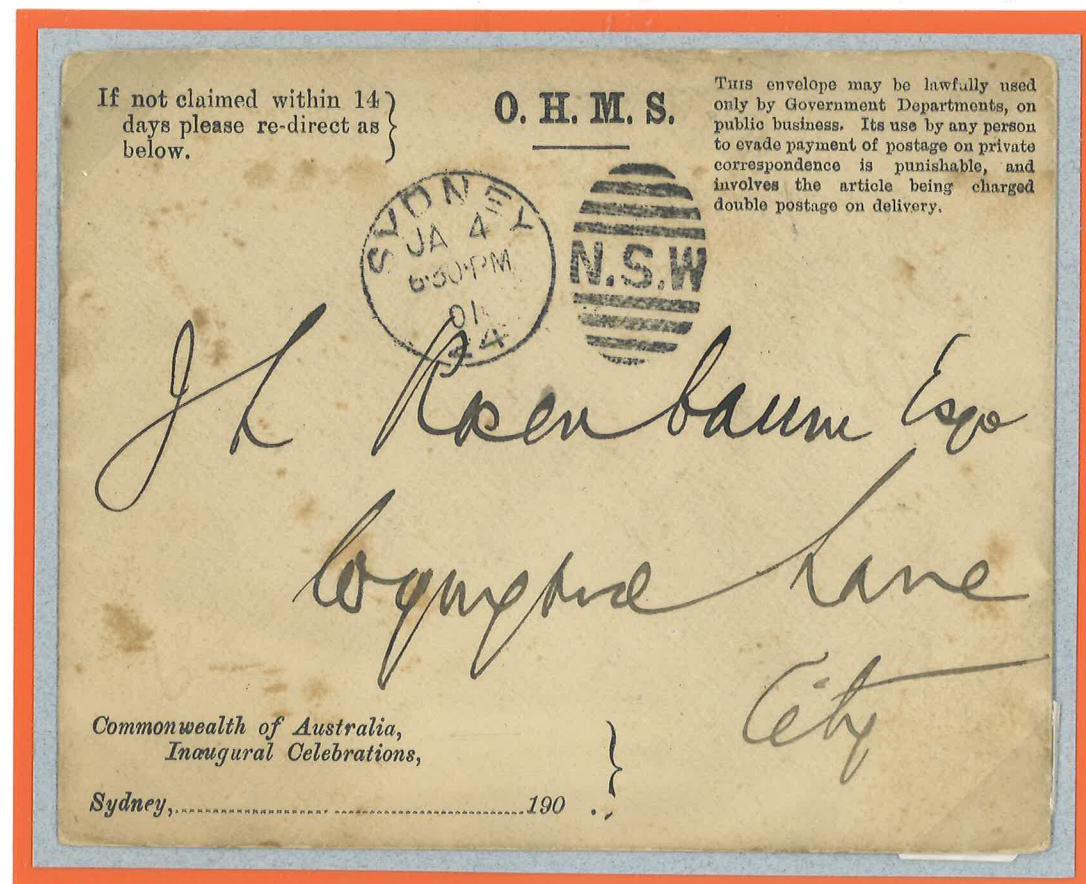 If not claimed within 14
days please re-direct as
below.
O. H. M. S.
THIS envelope may be lawfully used
only by Government Departments, on
public business. Its use by any person
to evade payment of postage on private
correspondence is punishable, and
involves the article being charged
double postage on delivery.
SYDNEY
JA 4
6·30·PM
01
24
N.S.W
J L Rosenbaum Esqr
Wynyard Lane
City
Commonwealth of Australia,
Inaugural Celebrations,
Sydney,..............................190 .